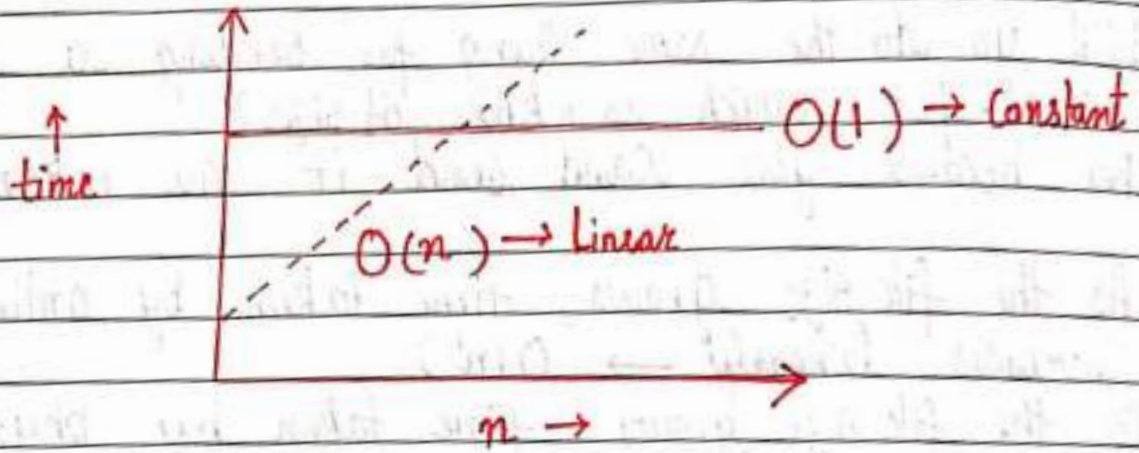 ↑
time
O(1) → Constant
O(n) → Linear
n →